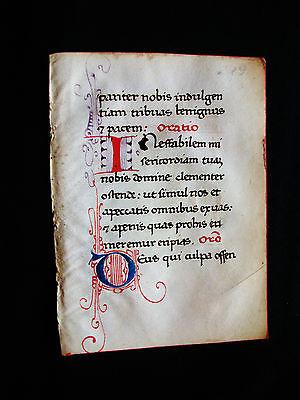 pariter nobis indulgen
tiam tribuas benignus
⁊ pacem: Oratio
Ineffabilem mi
sericordiam tuam
nobis domine clementer
ostende: ut simul nos et
a peccatis omnibus exuas:
⁊ a penis quas pro his en
meremur eripias. Orō
Deus qui culpa offen